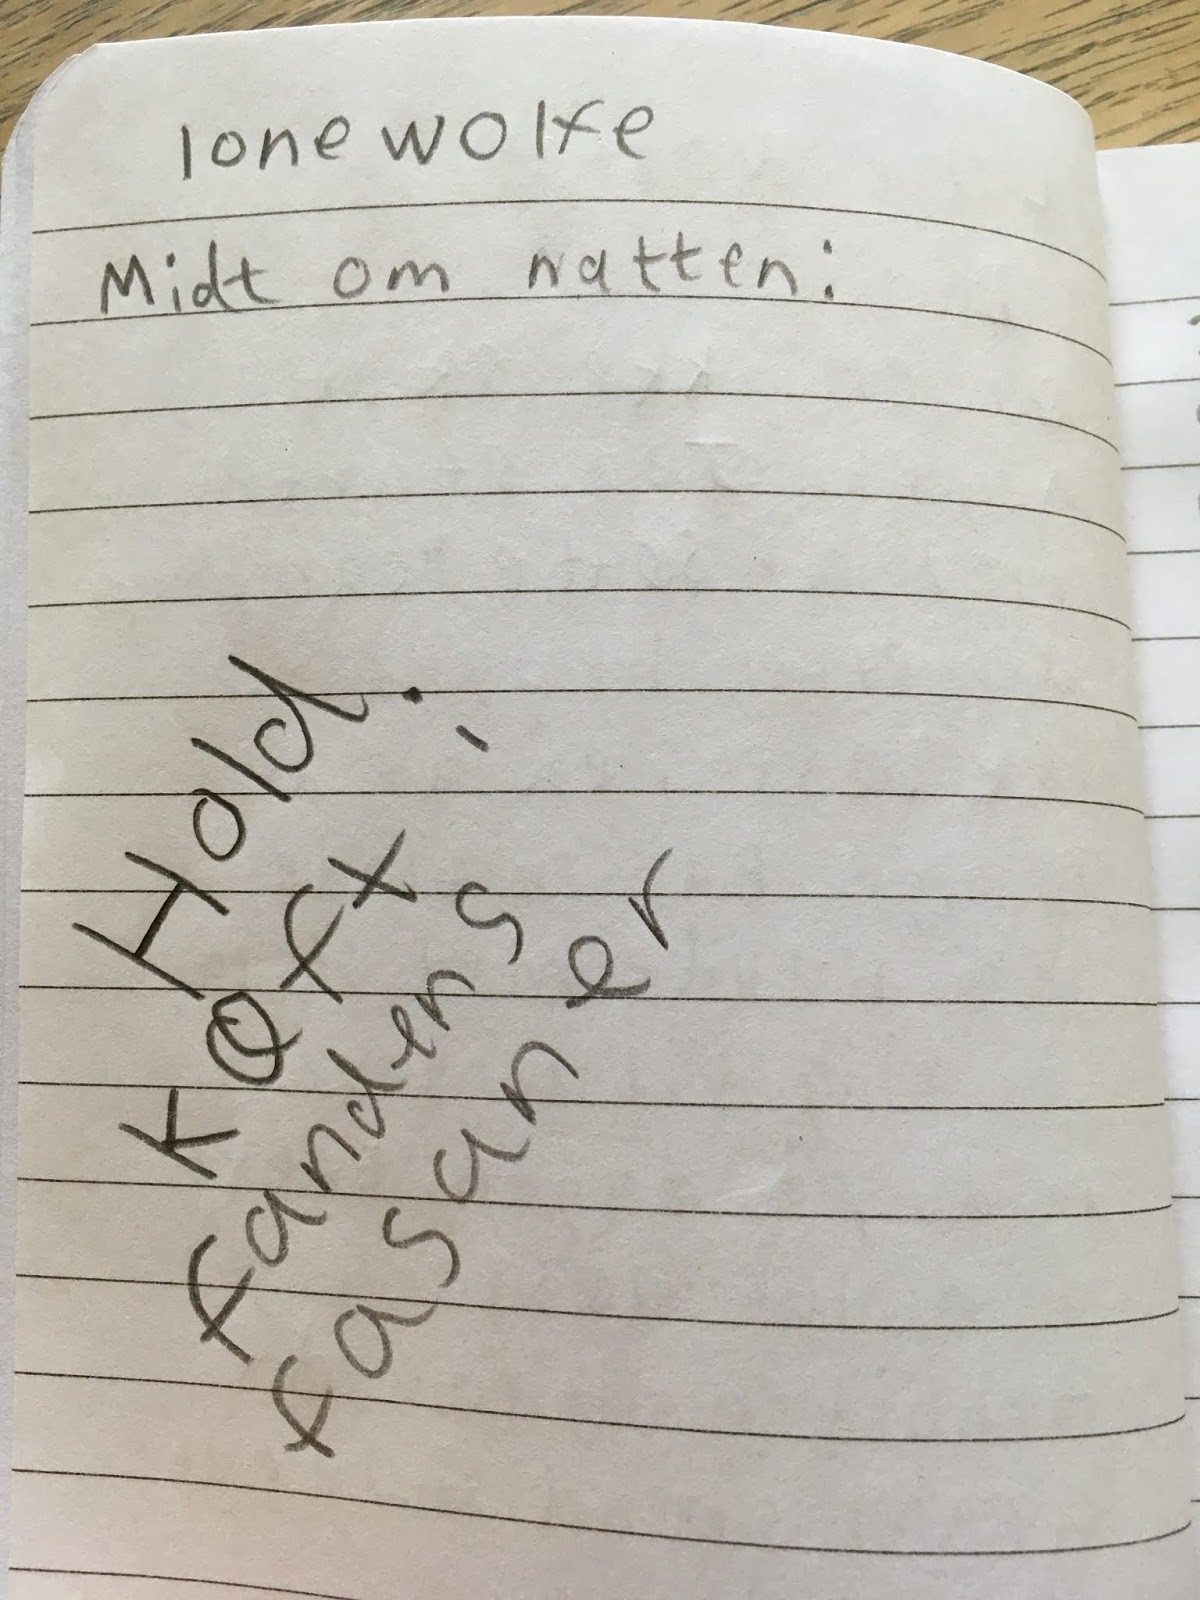 lonewolfe
Midt om natten:
Hold.
Køfx,
fandens
fasaner